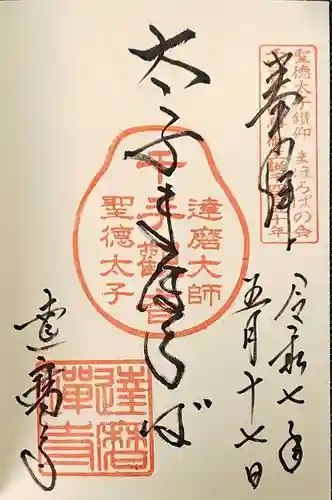 奉拝
聖徳太子鑽仰 まほろばの会
令和七年
五月十七日
太子まほろば
達磨大師
千手観音
聖徳太子
達磨寺
達磨禅寺